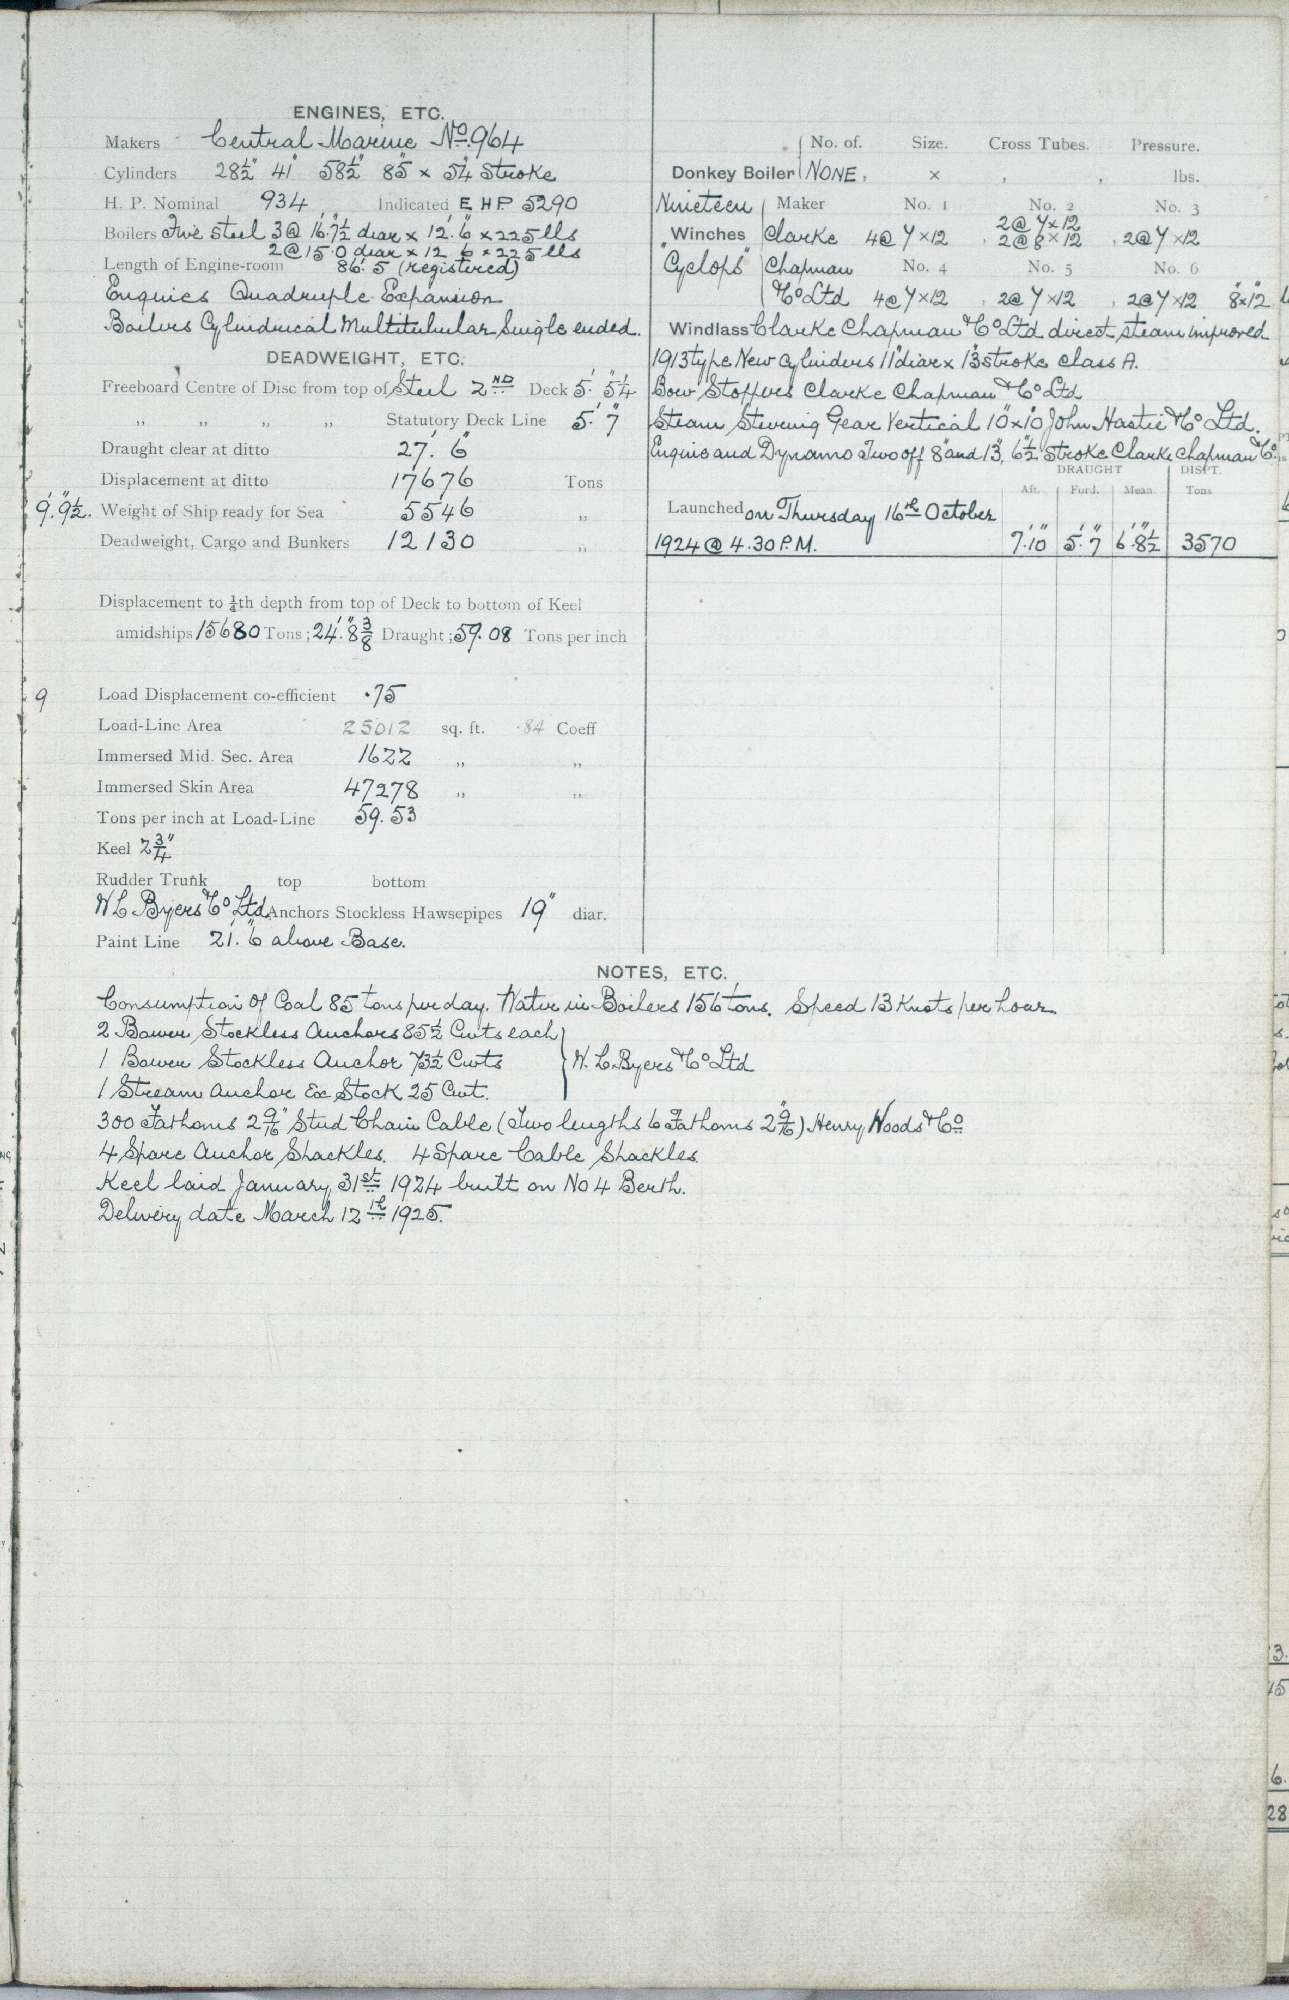 ENGINES, ETC.
Makers Central Marine No. 964
Cylinders 28½" 41" 58½" 85" × 54" Stroke
H. P. Nominal 934 Indicated E.H.P. 5290
Boilers Five steel 3 @ 16'.7½" diar × 12'.6" × 225 lbs
2 @ 15'.0 diar × 12.6 × 225 lbs
Length of Engine-room 86'.5 (registered)
Engines Quadruple Expansion
Boilers Cylindrical Multitubular Single ended.
DEADWEIGHT, ETC.
Freeboard Centre of Disc from top of Steel 2ND Deck 5'. 5¼"
„ „ „ „ Statutory Deck Line 5'. 7"
Draught clear at ditto 27'. 6"
Displacement at ditto 17676 Tons
9'.9½". Weight of Ship ready for Sea 5546 „
Deadweight, Cargo and Bunkers 12130 „
Displacement to ¼th depth from top of Deck to bottom of Keel
amidships 15680 Tons; 24'. 8⅜" Draught; 59.08 Tons per inch
9 Load Displacement co-efficient .75
Load-Line Area 25012 sq. ft. .84 Coeff
Immersed Mid. Sec. Area 1622 „ „
Immersed Skin Area 47278 „ „
Tons per inch at Load-Line 59.53
Keel 2¾"
Rudder Trunk top bottom
W L Byers & Co Ltd. Anchors Stockless Hawsepipes 19" diar.
Paint Line 21'. 6" above Base.
No. of. Size. Cross Tubes. Pressure.
Donkey Boiler NONE, × , , lbs.
Nineteen Maker No. 1 No. 2 No. 3
2 @ 7 × 12
Winches Clarke 4 @ 7 × 12 , 2 @ 8 × 12 , 2 @ 7 × 12
"Cyclops" Chapman No. 4 No. 5 No. 6
& Co Ltd 4 @ 7 × 12 , 2 @ 7 × 12 , 2 @ 7 × 12 8" × 12"
Windlass Clarke Chapman & Co Ltd direct steam improved
1913 type New Cylinders 11" diar × 13" stroke class A.
Bow Stoppers Clarke Chapman & Co Ltd
Steam Steering Gear Vertical 10" × 10" John Hastie & Co Ltd.
Engine and Dynamo Two off 8" and 13", 6½" stroke Clarke Chapman & Co.
DRAUGHT DISPT.
Aft. Ford. Mean. Tons
Launched on Thursday 16th October
1924 @ 4.30 P.M. 7'.10" 5'.7" 6'.8½" 3570
NOTES, ETC.
Consumption of Coal 85 tons per day. Water in Boilers 156 tons. Speed 13 Knots per hour
2 Bower Stockless Anchors 85½ Cwts each
1 Bower Stockless Anchor 73½ Cwts W. L. Byers & Co Ltd
1 Stream Anchor Ex Stock 25 Cwt.
300 Fathoms 2 9/16" Stud Chain Cable (Two lengths 6 Fathoms 2 9/16") Henry Woods & Co
4 Spare Anchor Shackles. 4 Spare Cable Shackles.
Keel laid January 31st 1924 built on No 4 Berth.
Delivery date March 12th 1925.